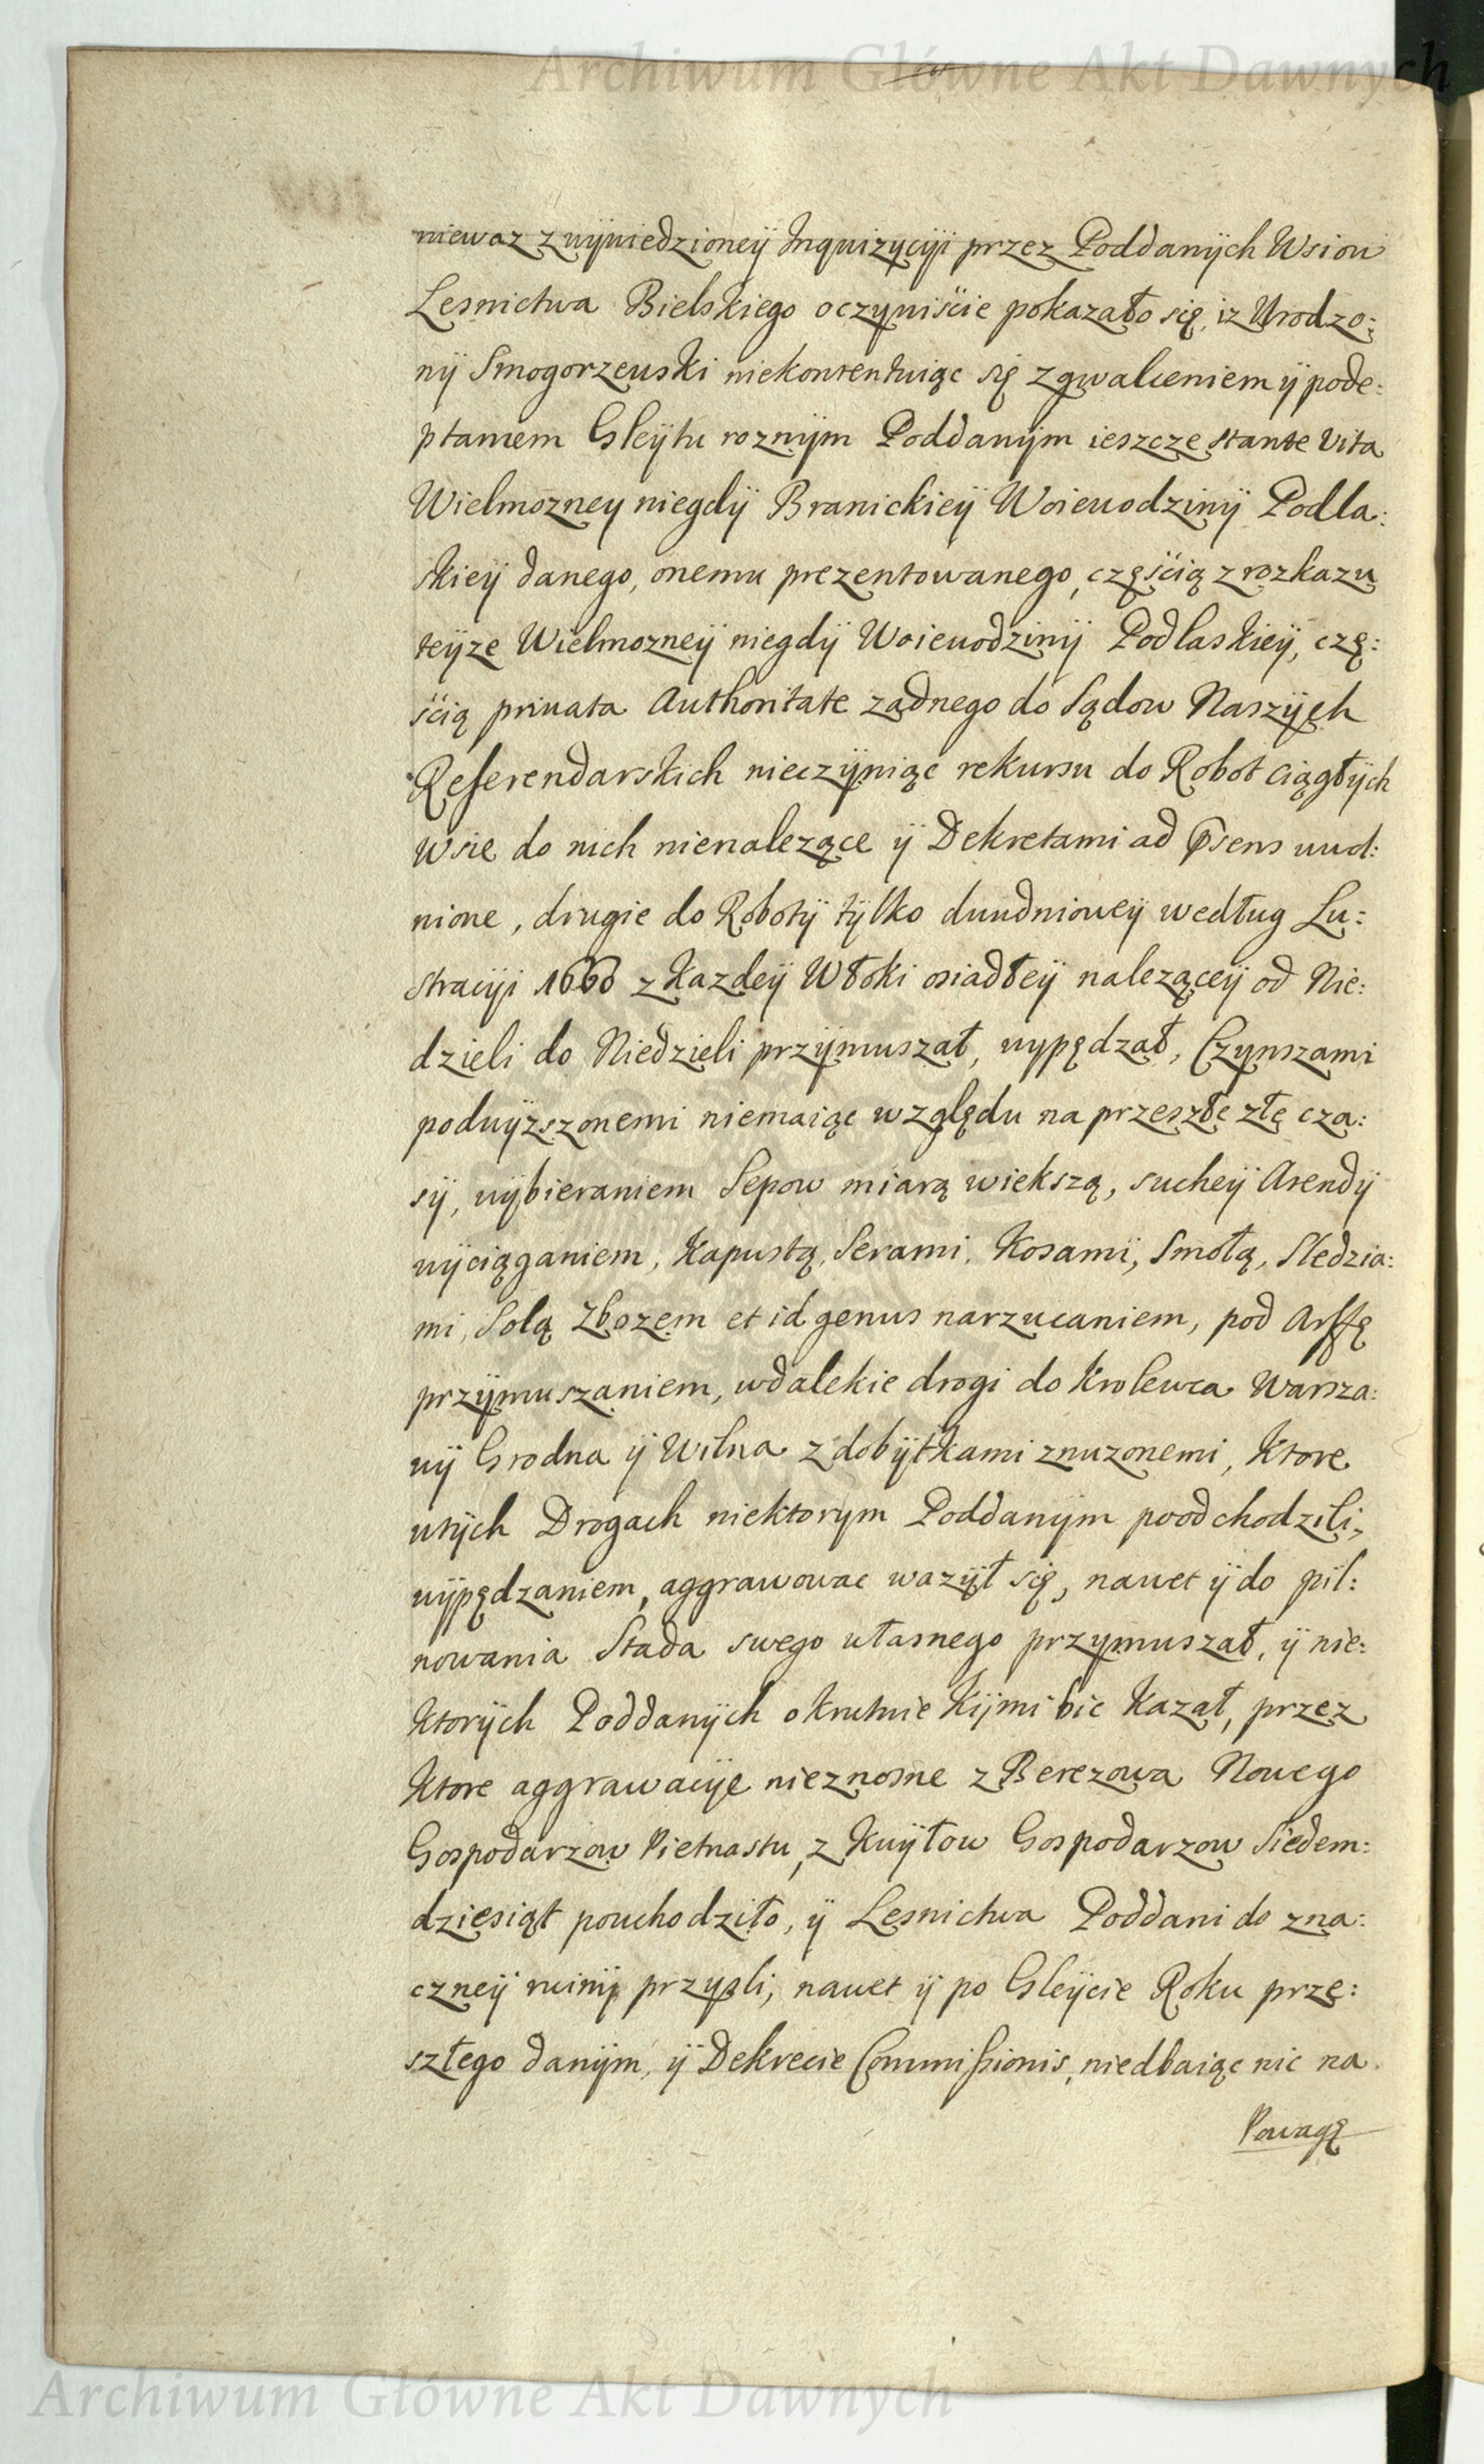 Archiwum Główne Akt Dawnych
niewaz z wywiedzioneÿ Inquizycÿi przez Poddanÿch Wsiow
Lesnictwa Bielskiego oczywiście pokazało się, iz Urodzo:
nÿ Smogorzewski niekontentuiąc się zgwałceniem ÿ pode:
ptaniem Gleÿtu roznÿm Poddanÿm ieszcze stante vita
Wielmozney niegdÿ Branickieÿ Woiewodzinÿ Podla:
skieÿ danego, onemu prezentowanego, częścią z rozkazu
teÿze Wielmozneÿ niegdÿ Woiewodzinÿ Podlaskieÿ, czę:
ścią privata Authoritate zadnego do Sądow Naszÿch
Referendarskich nieczÿniąc rekursu do Robot ciągłÿch
Wsie do nich nienalezące ÿ Dekretami ad psens uwol:
nione, drugie do Robotÿ tÿlko dwudnioweÿ według Lu:
stracÿi 1660 z Kazdeÿ Włoki osiadłeÿ naleząceÿ od Nie:
dzieli do Niedzieli przÿmuszał, wypędzał, Czynszami
podwÿzszonemi niemaiąc względu na przeszłe złe cza:
sÿ, wÿbieraniem Sepow miarą wiekszą, sucheÿ Arendÿ
wÿciąganiem, Kapustą, Serami, Kosami, Smołą, Sledzia:
mi, Solą Zbozem et id genus narzucaniem, pod Arffę
przÿmuszaniem, w dalekie drogi do Krolewca Warsza:
wÿ Grodna ÿ Wilna z dobÿtkami znuzonemi, Ktore
w tÿch Drogach niektorym Poddanÿm poodchodzili,
wÿpędzaniem, aggrawowac wazÿł się, nawet ÿ do pil:
nowania Stada swego własnego przymuszał, ÿ nie:
Ktorÿch Poddanÿch okrutnie Kijmi bic Kazał, przez
Ktore aggrawacÿe nieznosne z Berezowa Nowego
Gospodarzow Pietnastu, z Kuÿłow Gospodarzow Siedem:
dziesiąt powchodziło, ÿ Lesnictwa Poddani do zna:
czneÿ ruinÿ przyszli, nawet ÿ po Gleÿcie Roku prze:
szłego danÿm, ÿ Dekrecie Commissionis, niedbaiąc nic na
Powagę
Archiwum Główne Akt Dawnych